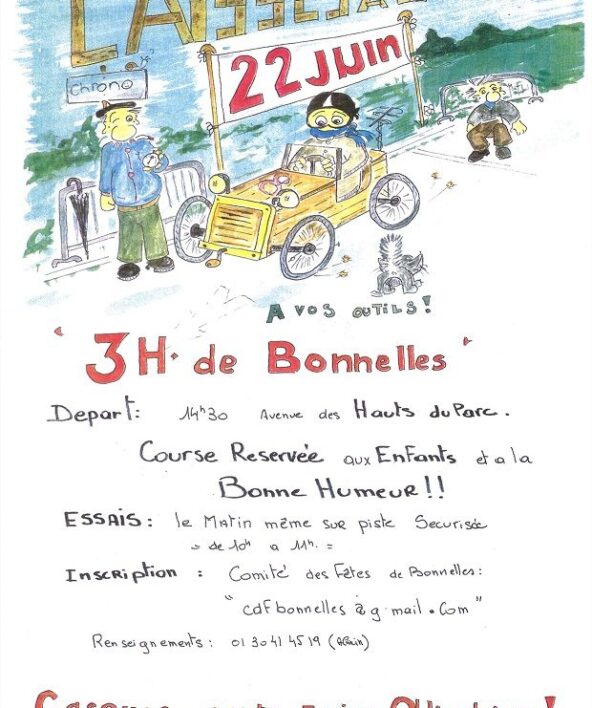 22 Juin
Chrono
A VOS OUTILS!
" 3H. de Bonnelles "
Depart: 14h30 Avenue des Hauts du Parc.
Course Reservée aux Enfants et a la
Bonne Humeur!!
ESSAIS: le Matin même sur piste Securisée
de 10h a 11h. =
Inscription : Comité des Fêtes de Bonnelles:
" cdfbonnelles @ g.mail.Com "
Renseignements: 01 30 41 45 19 (Alain)